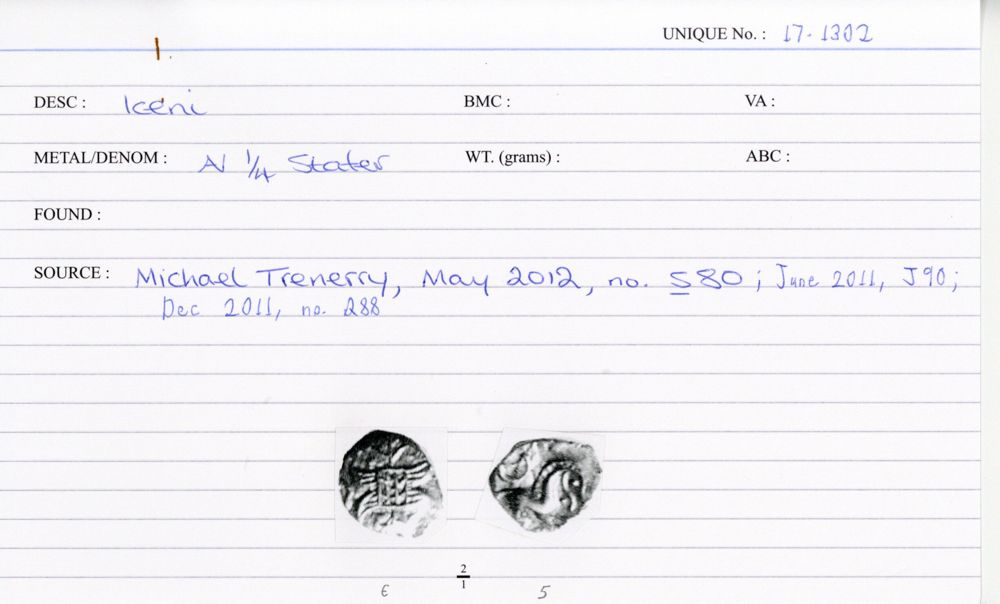 UNIQUE No. : 17-1302
DESC : Iceni BMC : VA :
METAL/DENOM : AV 1/4 Stater WT. (grams) : ABC :
FOUND :
SOURCE : Michael Trenerry, May 2012, no. S80; June 2011, J90;
Dec 2011, no. 288
2
1
6 5